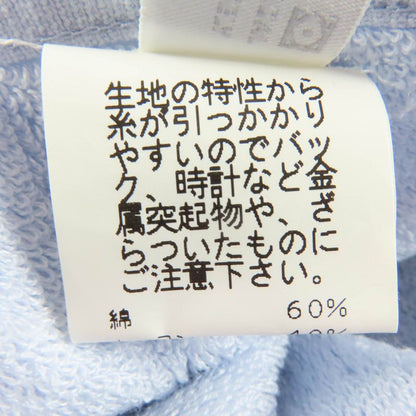 生地の特性から
糸が引っかかり
やすいのでバッ
グ、時計など金
属突起物や、ざ
らついたものに
ご注意下さい。
綿 60%